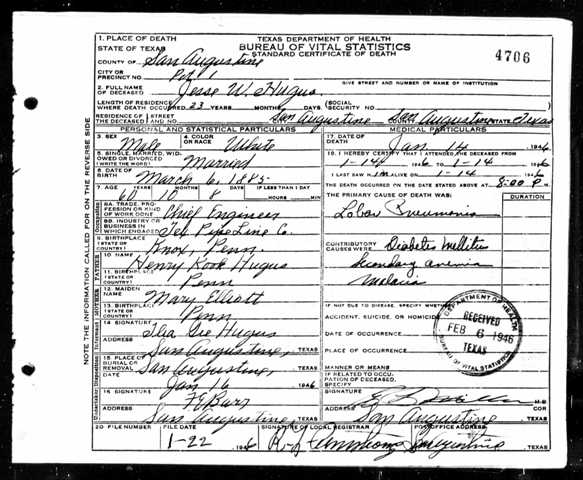 TEXAS DEPARTMENT OF HEALTH
BUREAU OF VITAL STATISTICS
STANDARD CERTIFICATE OF DEATH
4706
1. PLACE OF DEATH
STATE OF TEXAS
COUNTY OF San Augustine
CITY OR PRECINCT NO. Pct 1
GIVE STREET AND NUMBER OR NAME OF INSTITUTION
2. FULL NAME OF DECEASED Jesse W. Hugus
LENGTH OF RESIDENCE WHERE DEATH OCCURRED 23 YEARS MONTHS (SOCIAL SECURITY NO.
RESIDENCE OF THE DECEASED STREET AND NO. San Augustine San Augustine STATE Texas
PERSONAL AND STATISTICAL PARTICULARS
MEDICAL PARTICULARS
3. SEX Male 4. COLOR OR RACE White
17. DATE OF DEATH Jan 14 1946
5. SINGLE, MARRIED, WIDOWED OR DIVORCED (WRITE) Married
18. I HEREBY CERTIFY THAT I ATTENDED THE DECEASED FROM
1-14 1946 TO 1-14 1946
6. DATE OF BIRTH March 6, 1885
I LAST SAW him ALIVE ON 1-14 1946
7. AGE 60 10 8 IF LESS THAN 1 DAY HOURS MIN
THE DEATH OCCURRED ON THE DATE STATED ABOVE AT 8:00 P M
8A. TRADE, PROFESSION OR KIND OF WORK DONE Chief Engineer
THE PRIMARY CAUSE OF DEATH WAS: DURATION
Lobar Pneumonia
8B. INDUSTRY OR BUSINESS IN WHICH ENGAGED Pipe Line Co.
9. BIRTHPLACE (STATE OR COUNTRY) Knox, Penn.
CONTRIBUTORY CAUSES WERE: Diabetes Mellitus
Secondary anemia
10. NAME Henry Kook Hugus
Malaria
11. BIRTHPLACE (STATE OR COUNTRY) Penn
12. MAIDEN NAME Mary Elliott
13. BIRTHPLACE (STATE OR COUNTRY) Penn
IF NOT DUE TO DISEASE, SPECIFY WHETHER
ACCIDENT, SUICIDE, OR HOMICIDE
14. SIGNATURE Hugus
DATE OF OCCURRENCE
ADDRESS San Augustine, TEXAS
PLACE OF OCCURRENCE
15. PLACE OF BURIAL OR REMOVAL San Augustine, TEXAS
MANNER OR MEANS
Jan 16 1946
IF RELATED TO OCCUPATION OF DECEASED, SPECIFY
16. SIGNATURE
SIGNATURE M.D.
ADDRESS San Augustine TEXAS
ADDRESS San Augustine TEXAS
20. FILE NUMBER FILE DATE SIGNATURE OF LOCAL REGISTRAR POST OFFICE ADDRESS
1-22 1946 San Augustine TEXAS
DEPARTMENT OF HEALTH
RECEIVED
FEB 6 1946
TEXAS
BUREAU OF VITAL STATISTICS
NOTE THE INFORMATION CALLED FOR ON THE REVERSE SIDE